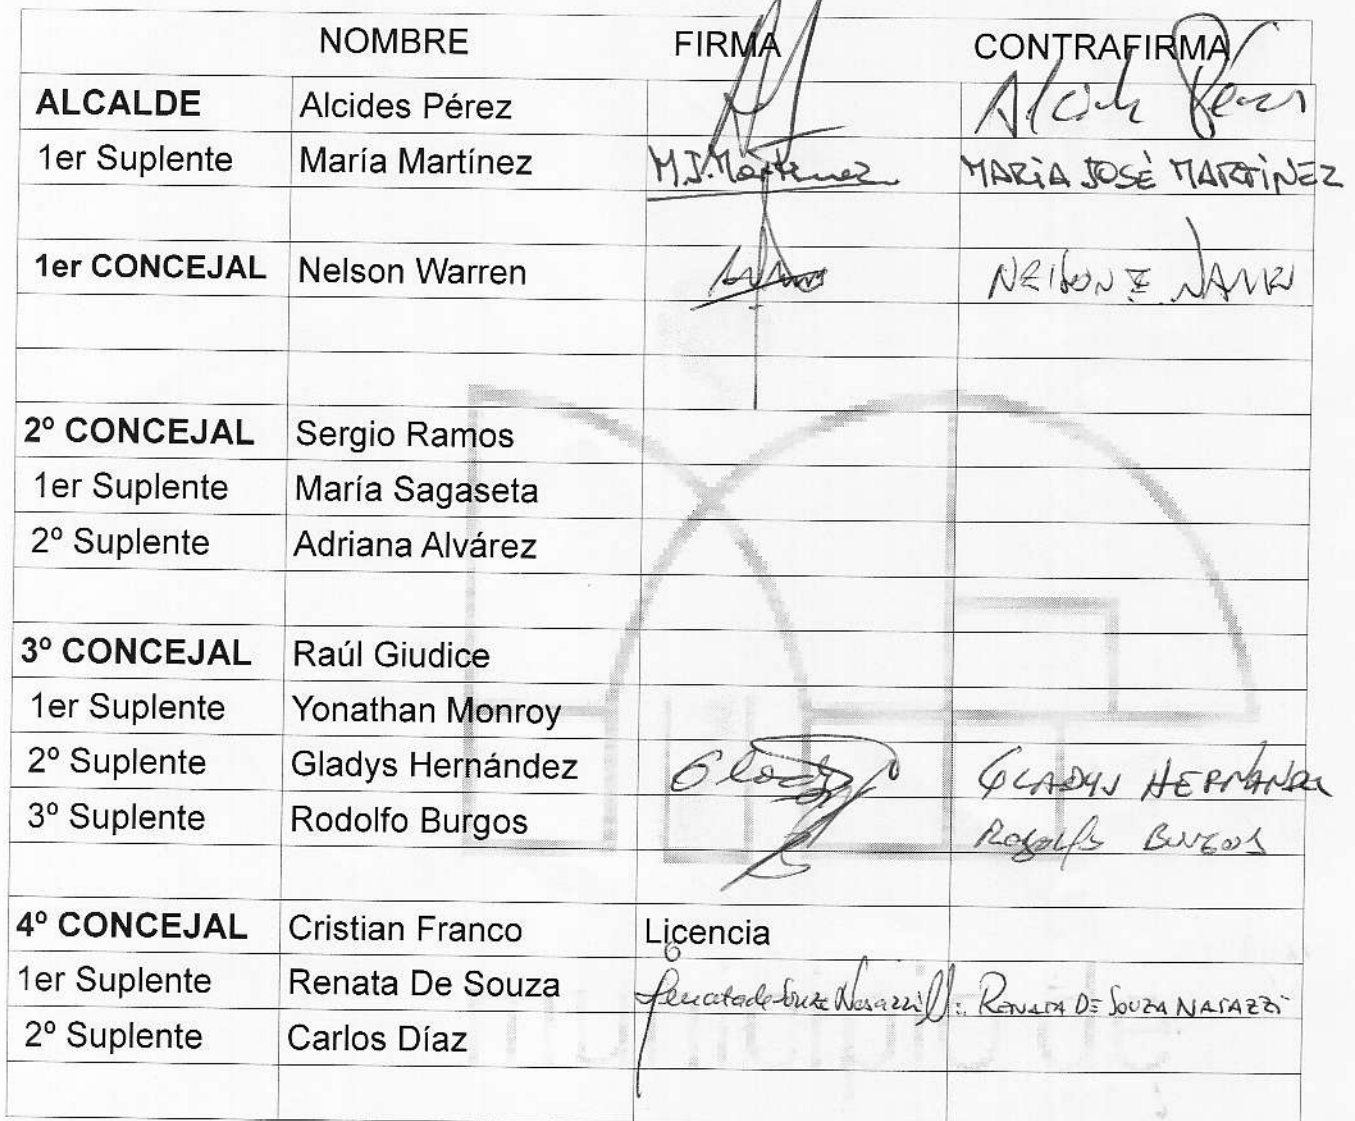 NOMBRE FIRMA CONTRAFIRMA
ALCALDE Alcides Pérez Alcides Pérez
1er Suplente María Martínez M.J.Martinez MARIA JOSÉ MARTINEZ
1er CONCEJAL Nelson Warren NELSON
2º CONCEJAL Sergio Ramos
1er Suplente María Sagaseta
2º Suplente Adriana Alvárez
3º CONCEJAL Raúl Giudice
1er Suplente Yonathan Monroy
2º Suplente Gladys Hernández Gladys GLADYS HERNANDEZ
3º Suplente Rodolfo Burgos Rodolfo BURGOS
4º CONCEJAL Cristian Franco Licencia
1er Suplente Renata De Souza Renata de Souza Nasazzi RENATA DE SOUZA NASAZZI
2º Suplente Carlos Díaz
municipio de